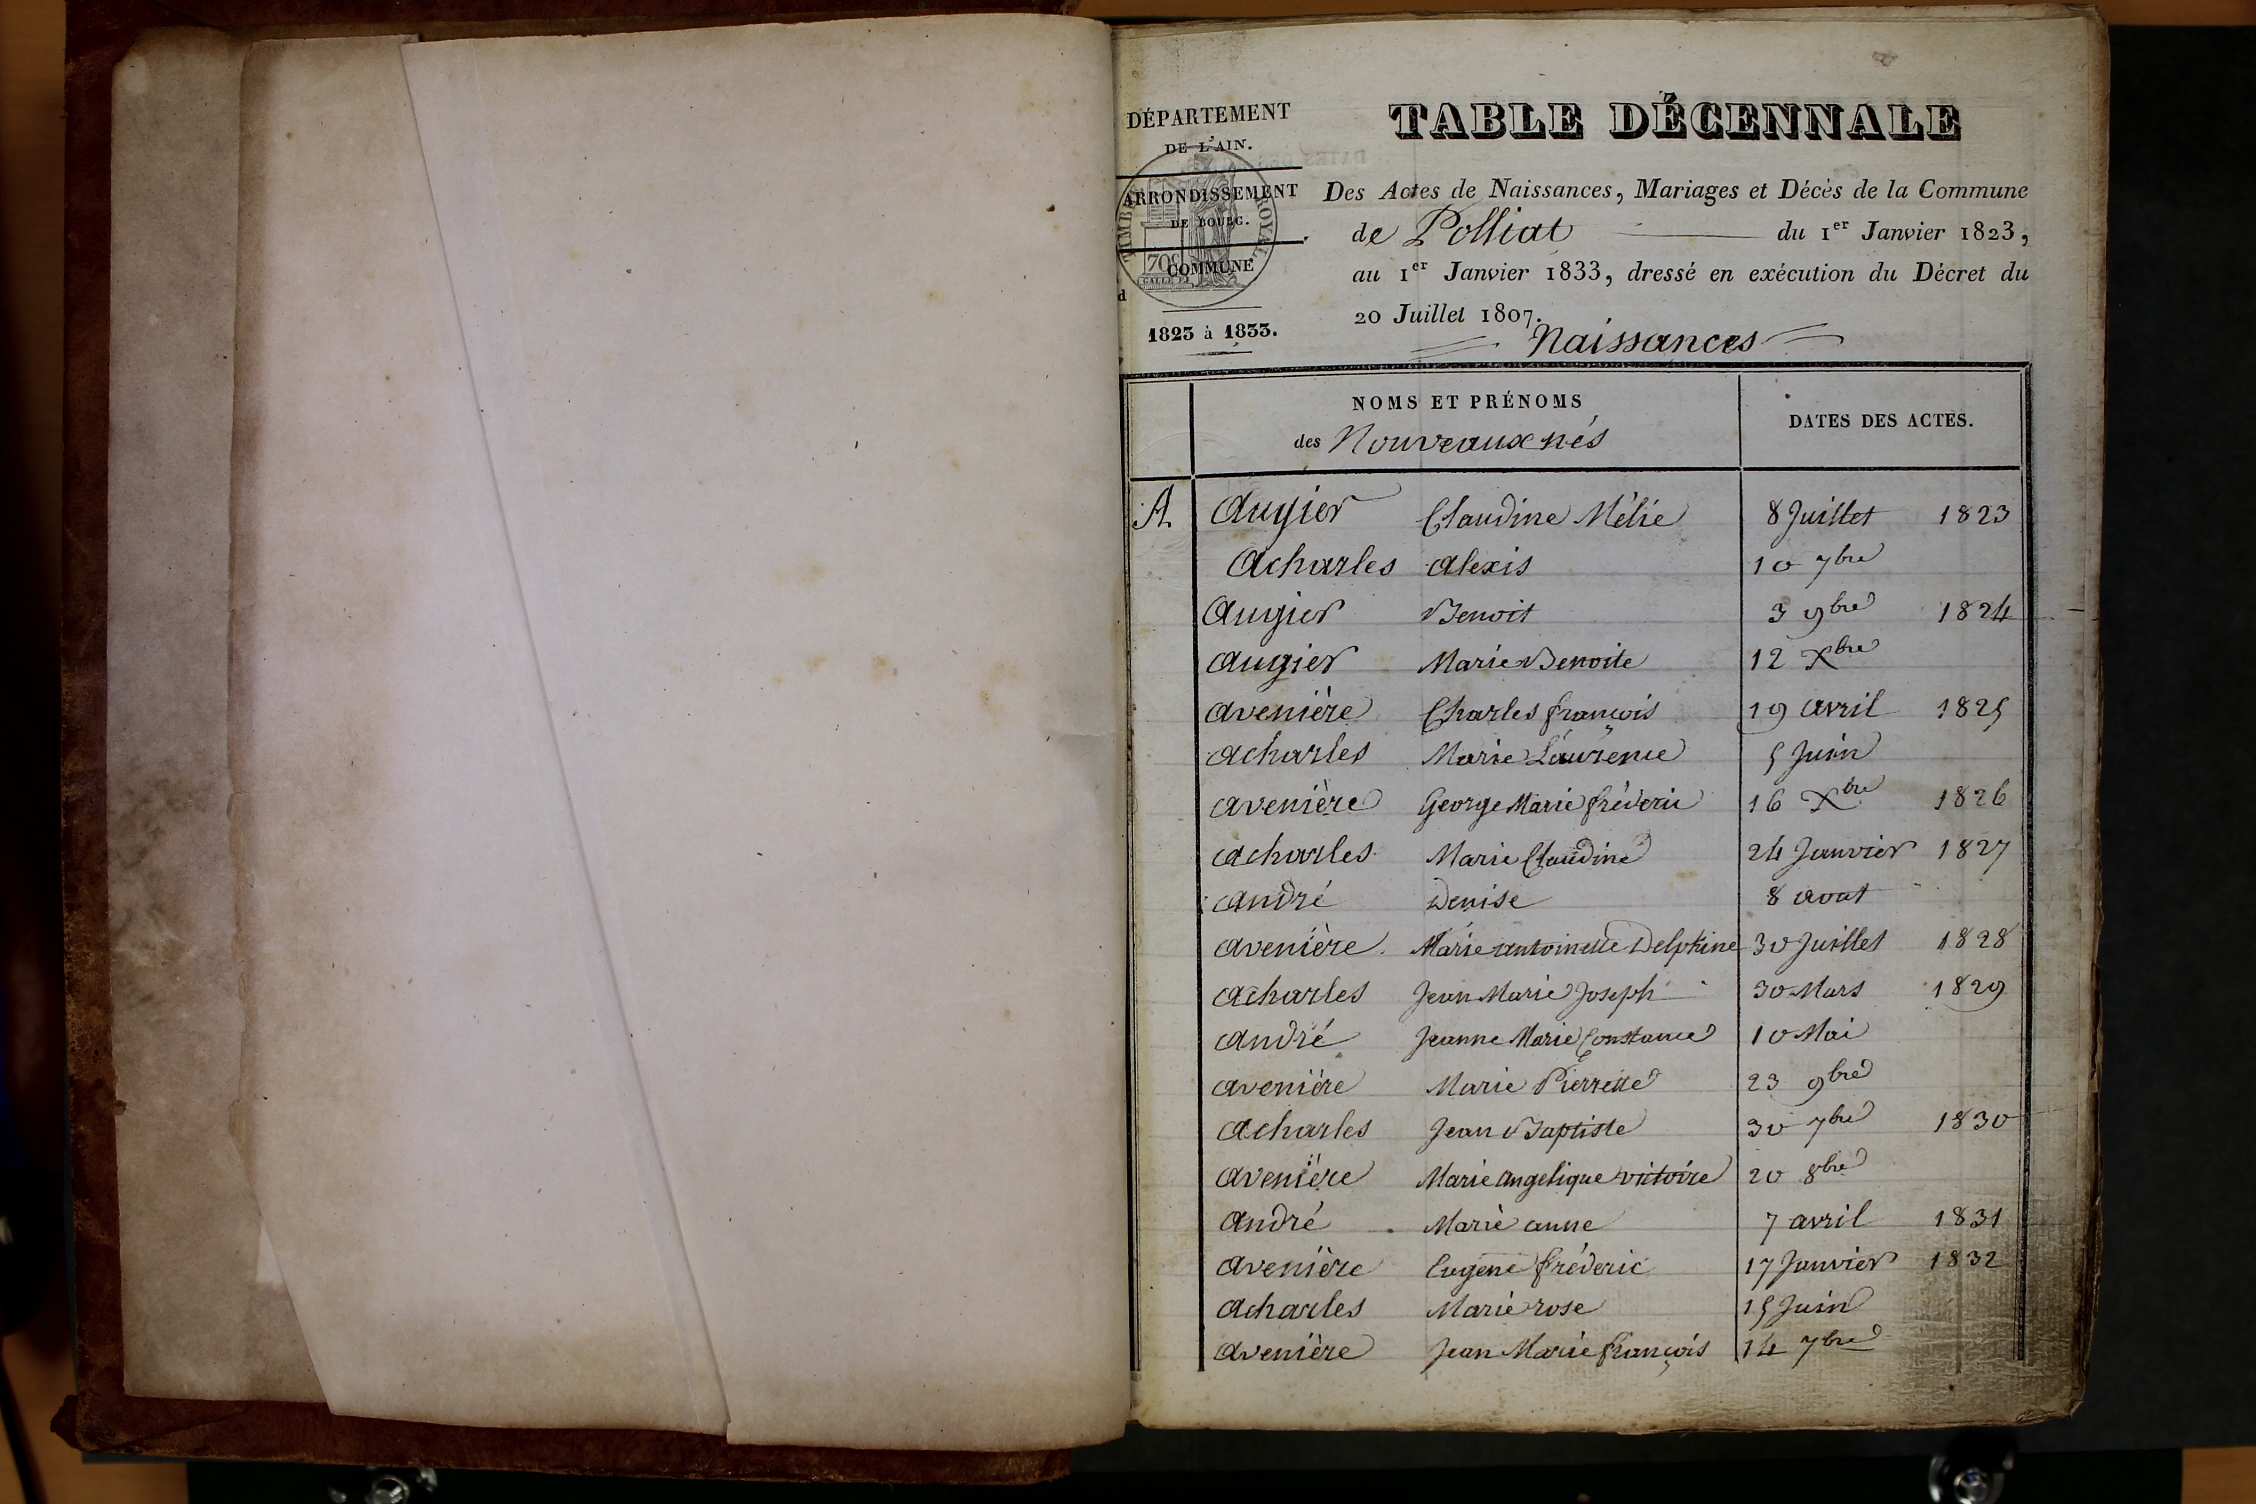 DÉPARTEMENT
DE L'AIN.
ARRONDISSEMENT
DE BOURG.
COMMUNE
d
1823 à 1833.
TIMBRE ROYAL
70c
TABLE DÉCENNALE
Des Actes de Naissances, Mariages et Décès de la Commune
de Polliat du 1er Janvier 1823,
au 1er Janvier 1833, dressé en exécution du Décret du
20 Juillet 1807.
Naissances
NOMS ET PRÉNOMS
des Nouveaux nés
DATES DES ACTES.
A Augier Claudine Mélie 8 Juillet 1823
Acharles Alexis 10 7bre
Augier Benoit 3 9bre 1824
Augier Marie Benoite 12 Xbre
Avenière Charles françois 19 avril 1825
Acharles Marie Laurence 5 Juin
avenière George Marie fréderic 16 Xbre 1826
acharles Marie Claudine 24 Janvier 1827
andré Denise 8 aout
avenière Marie antoinette Delphine 30 Juillet 1828
acharles Jean Marie Joseph 30 Mars 1829
andré Jeanne Marie Constance 10 Mai
avenière Marie Pierrette 23 9bre
Acharles Jean Baptiste 30 7bre 1830
avenière Marie angelique victoire 20 8bre
André Marie anne 7 avril 1831
avenière Eugene fréderic 17 Janvier 1832
Acharles Marie rose 15 Juin
avenière Jean Marie françois 14 7bre